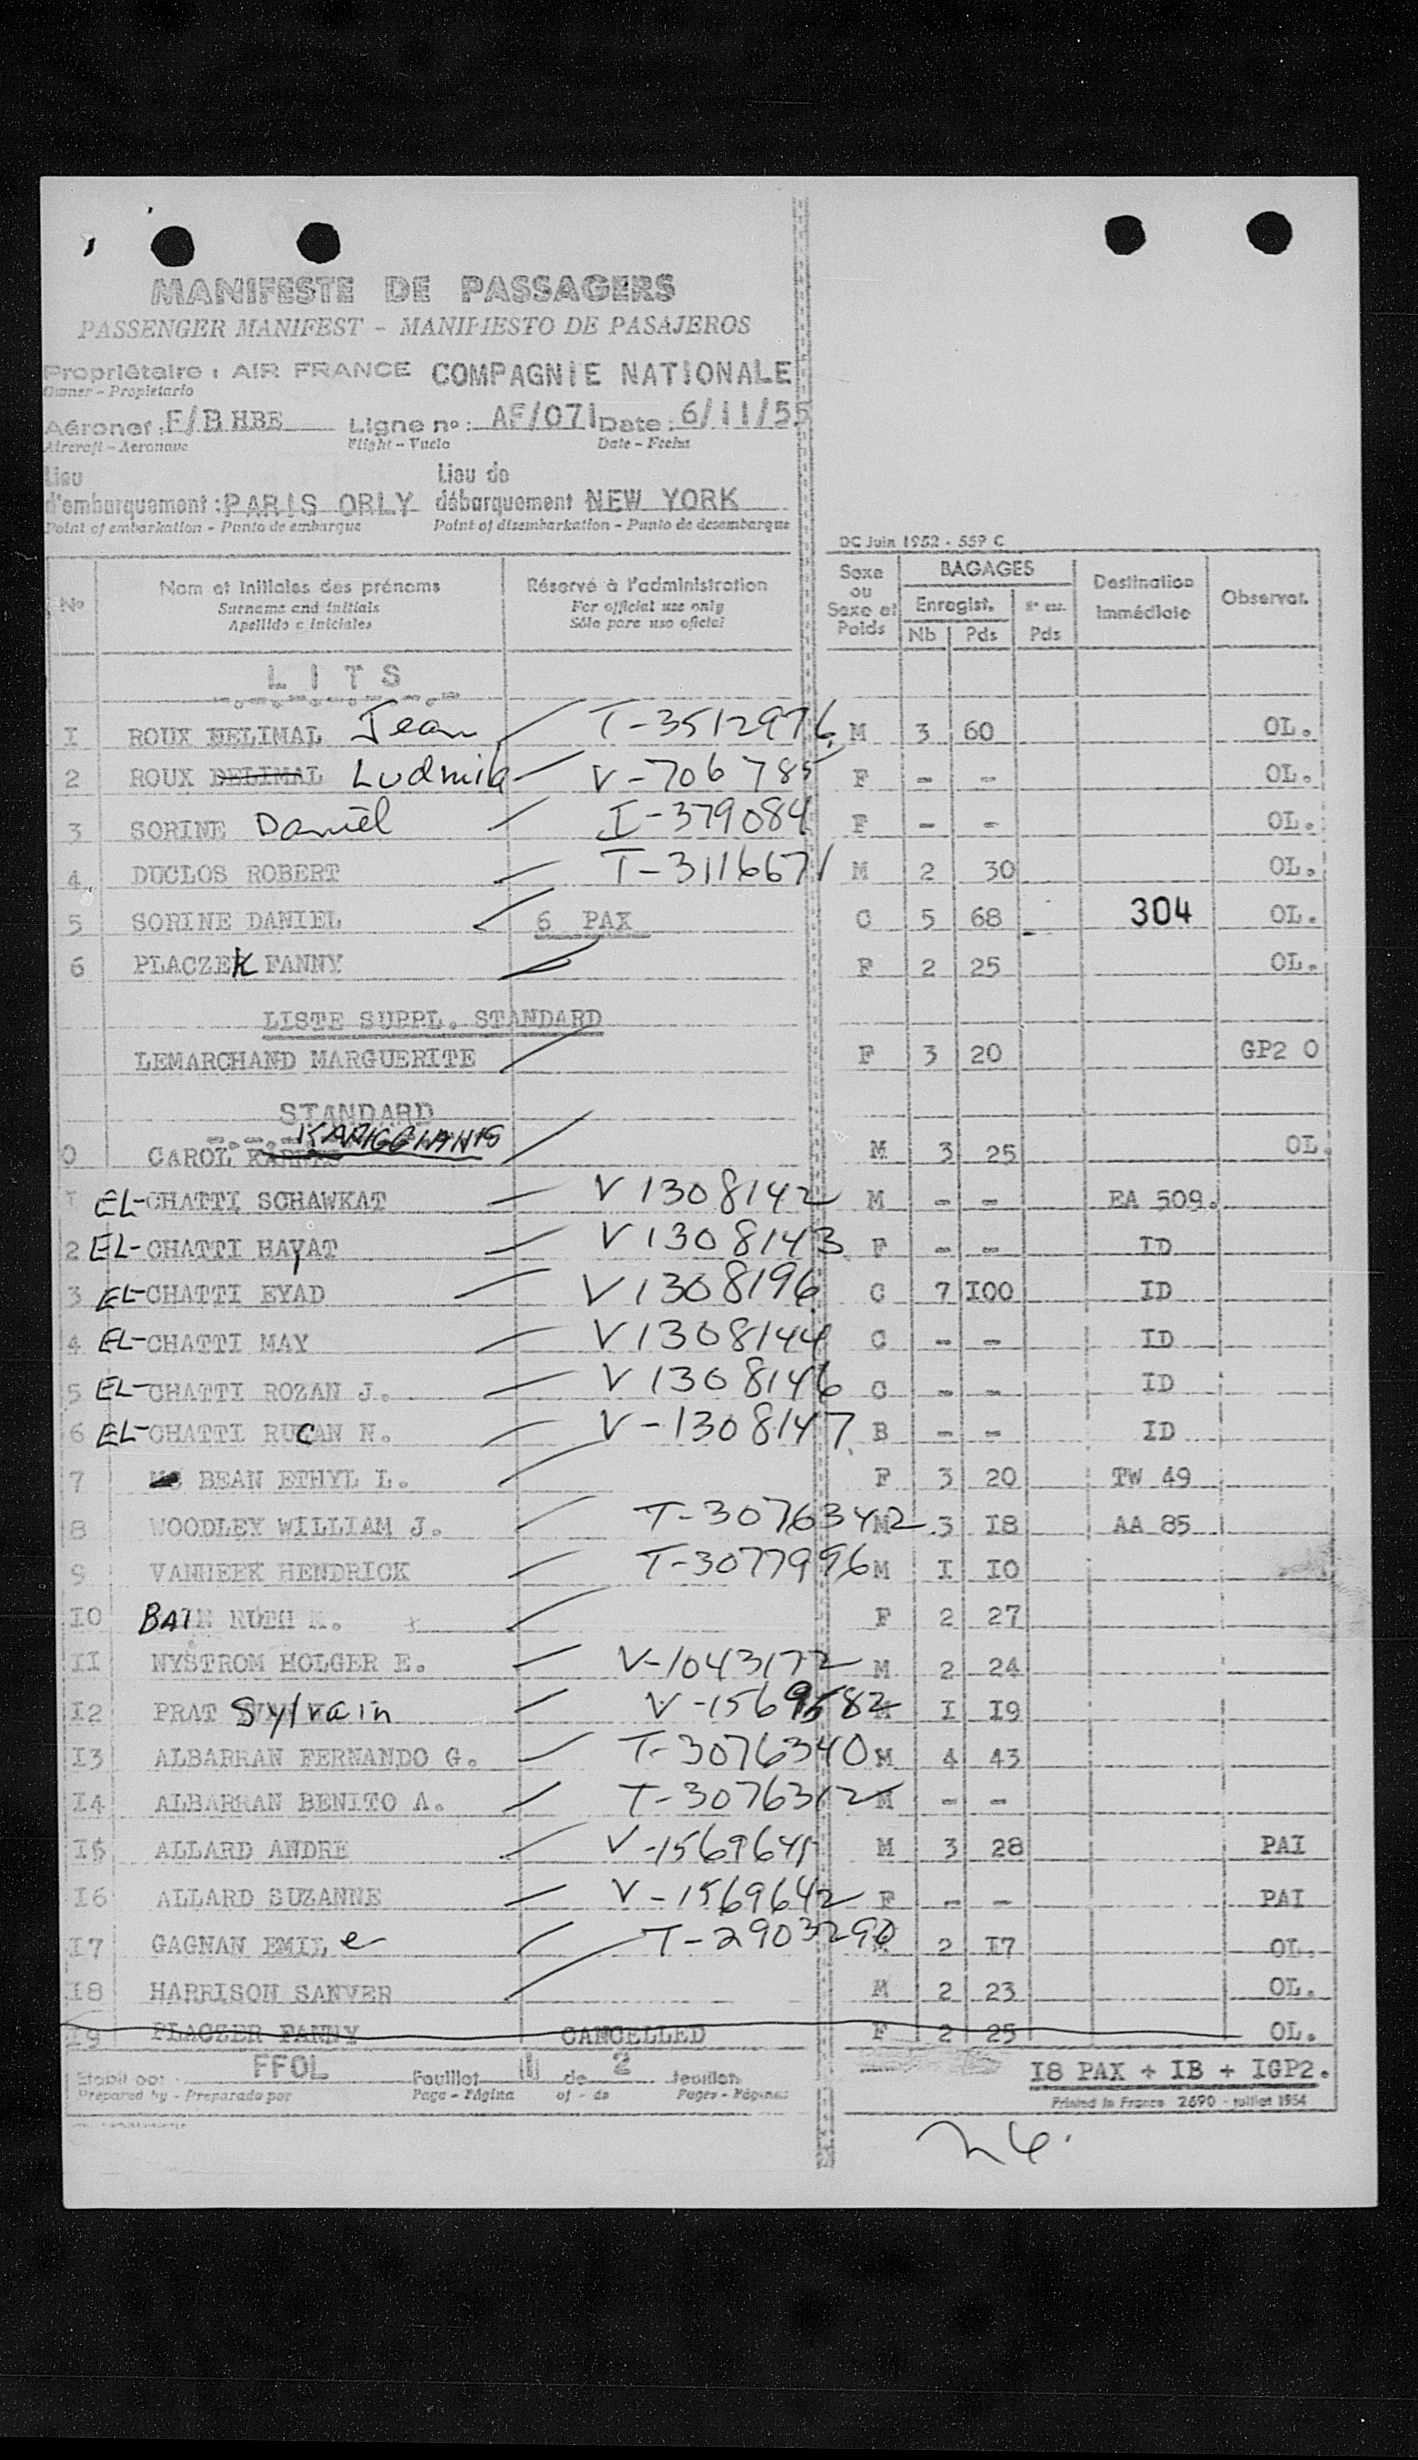 MANIFESTE DE PASSAGERS
PASSENGER MANIFEST - MANIFIESTO DE PASAJEROS
Propriétaire : AIR FRANCE COMPAGNIE NATIONALE
Owner - Propietario
Aéronef : F/BHBE Ligne no : AF/071 Date : 6/11/55
Aircraft - Aeronave Flight - Vuelo Date - Fecha
Lieu Lieu de
d'embarquement : PARIS ORLY débarquement NEW YORK
Point of embarkation - Punto de embarque Point of disembarkation - Punto de desembarque
DC Juin 1952 - 559 C
No Nom et initiales des prénoms Réservé à l'administration Sexe ou Sexe et Poids BAGAGES Destination immédiate Observat.
Surname and initials For official use only Enregist.
Apellido e iniciales Sólo para uso oficial Nb Pds Pds
LITS
I ROUX DELIMAL Jean T-3512976 M 3 60 OL.
2 ROUX DELIMAL Ludmila V-706785 F - - OL.
3 SORINE Daniël I-379084 F - - OL.
4 DUCLOS ROBERT T-3116671 M 2 30 OL.
5 SORINE DANIEL 6 PAX C 5 68 - 304 OL.
6 PLACZEK FANNY F 2 25 OL.
LISTE SUPPL. STANDARD
LEMARCHAND MARGUERITE F 3 20 GP2 O
STANDARD
O CAROL M 3 25 OL.
EL-CHATTI SCHAWKAT V 1308142 M - - EA 509.
2 EL-CHATTI HAYAT V 1308143 F - - ID
3 EL-CHATTI EYAD V 1308196 C 7 I00 ID
4 EL-CHATTI MAY V 1308144 C - - ID
5 EL-CHATTI ROZAN J. V 1308146 C - - ID
6 EL-CHATTI RUCAN N. V-1308147 B - - ID
7 BEAN ETHYL L. F 3 20 TW 49
8 WOODLEY WILLIAM J. T-3076342 M 3 I8 AA 85
9 VANHEEK HENDRICK T-3077996 M I I0
I0 BAIN RUTH M. F 2 27
II NYSTROM HOLGER E. V-1043172 M 2 24
I2 PRAT Sylvain V-1569582 M I I9
I3 ALBARRAN FERNANDO G. T-3076340 M 4 43
I4 ALBARRAN BENITO A. T-3076312 M - -
I5 ALLARD ANDRE V-1569641 M 3 28 PAI
I6 ALLARD SUZANNE V-1569642 F - - PAI
I7 GAGNAN EMILe T-2903290 M 2 I7 OL.
I8 HARRISON SANVER M 2 23 OL.
I9 PLACZER FANNY CANCELLED F 2 25 OL.
Etabli par FFOL Feuillet 1 de 2 feuillets I8 PAX + IB + IGP2.
Prepared by - Preparado por Page - Página of - de Pages - Páginas Printed in France 2690 - juillet 1954
26.